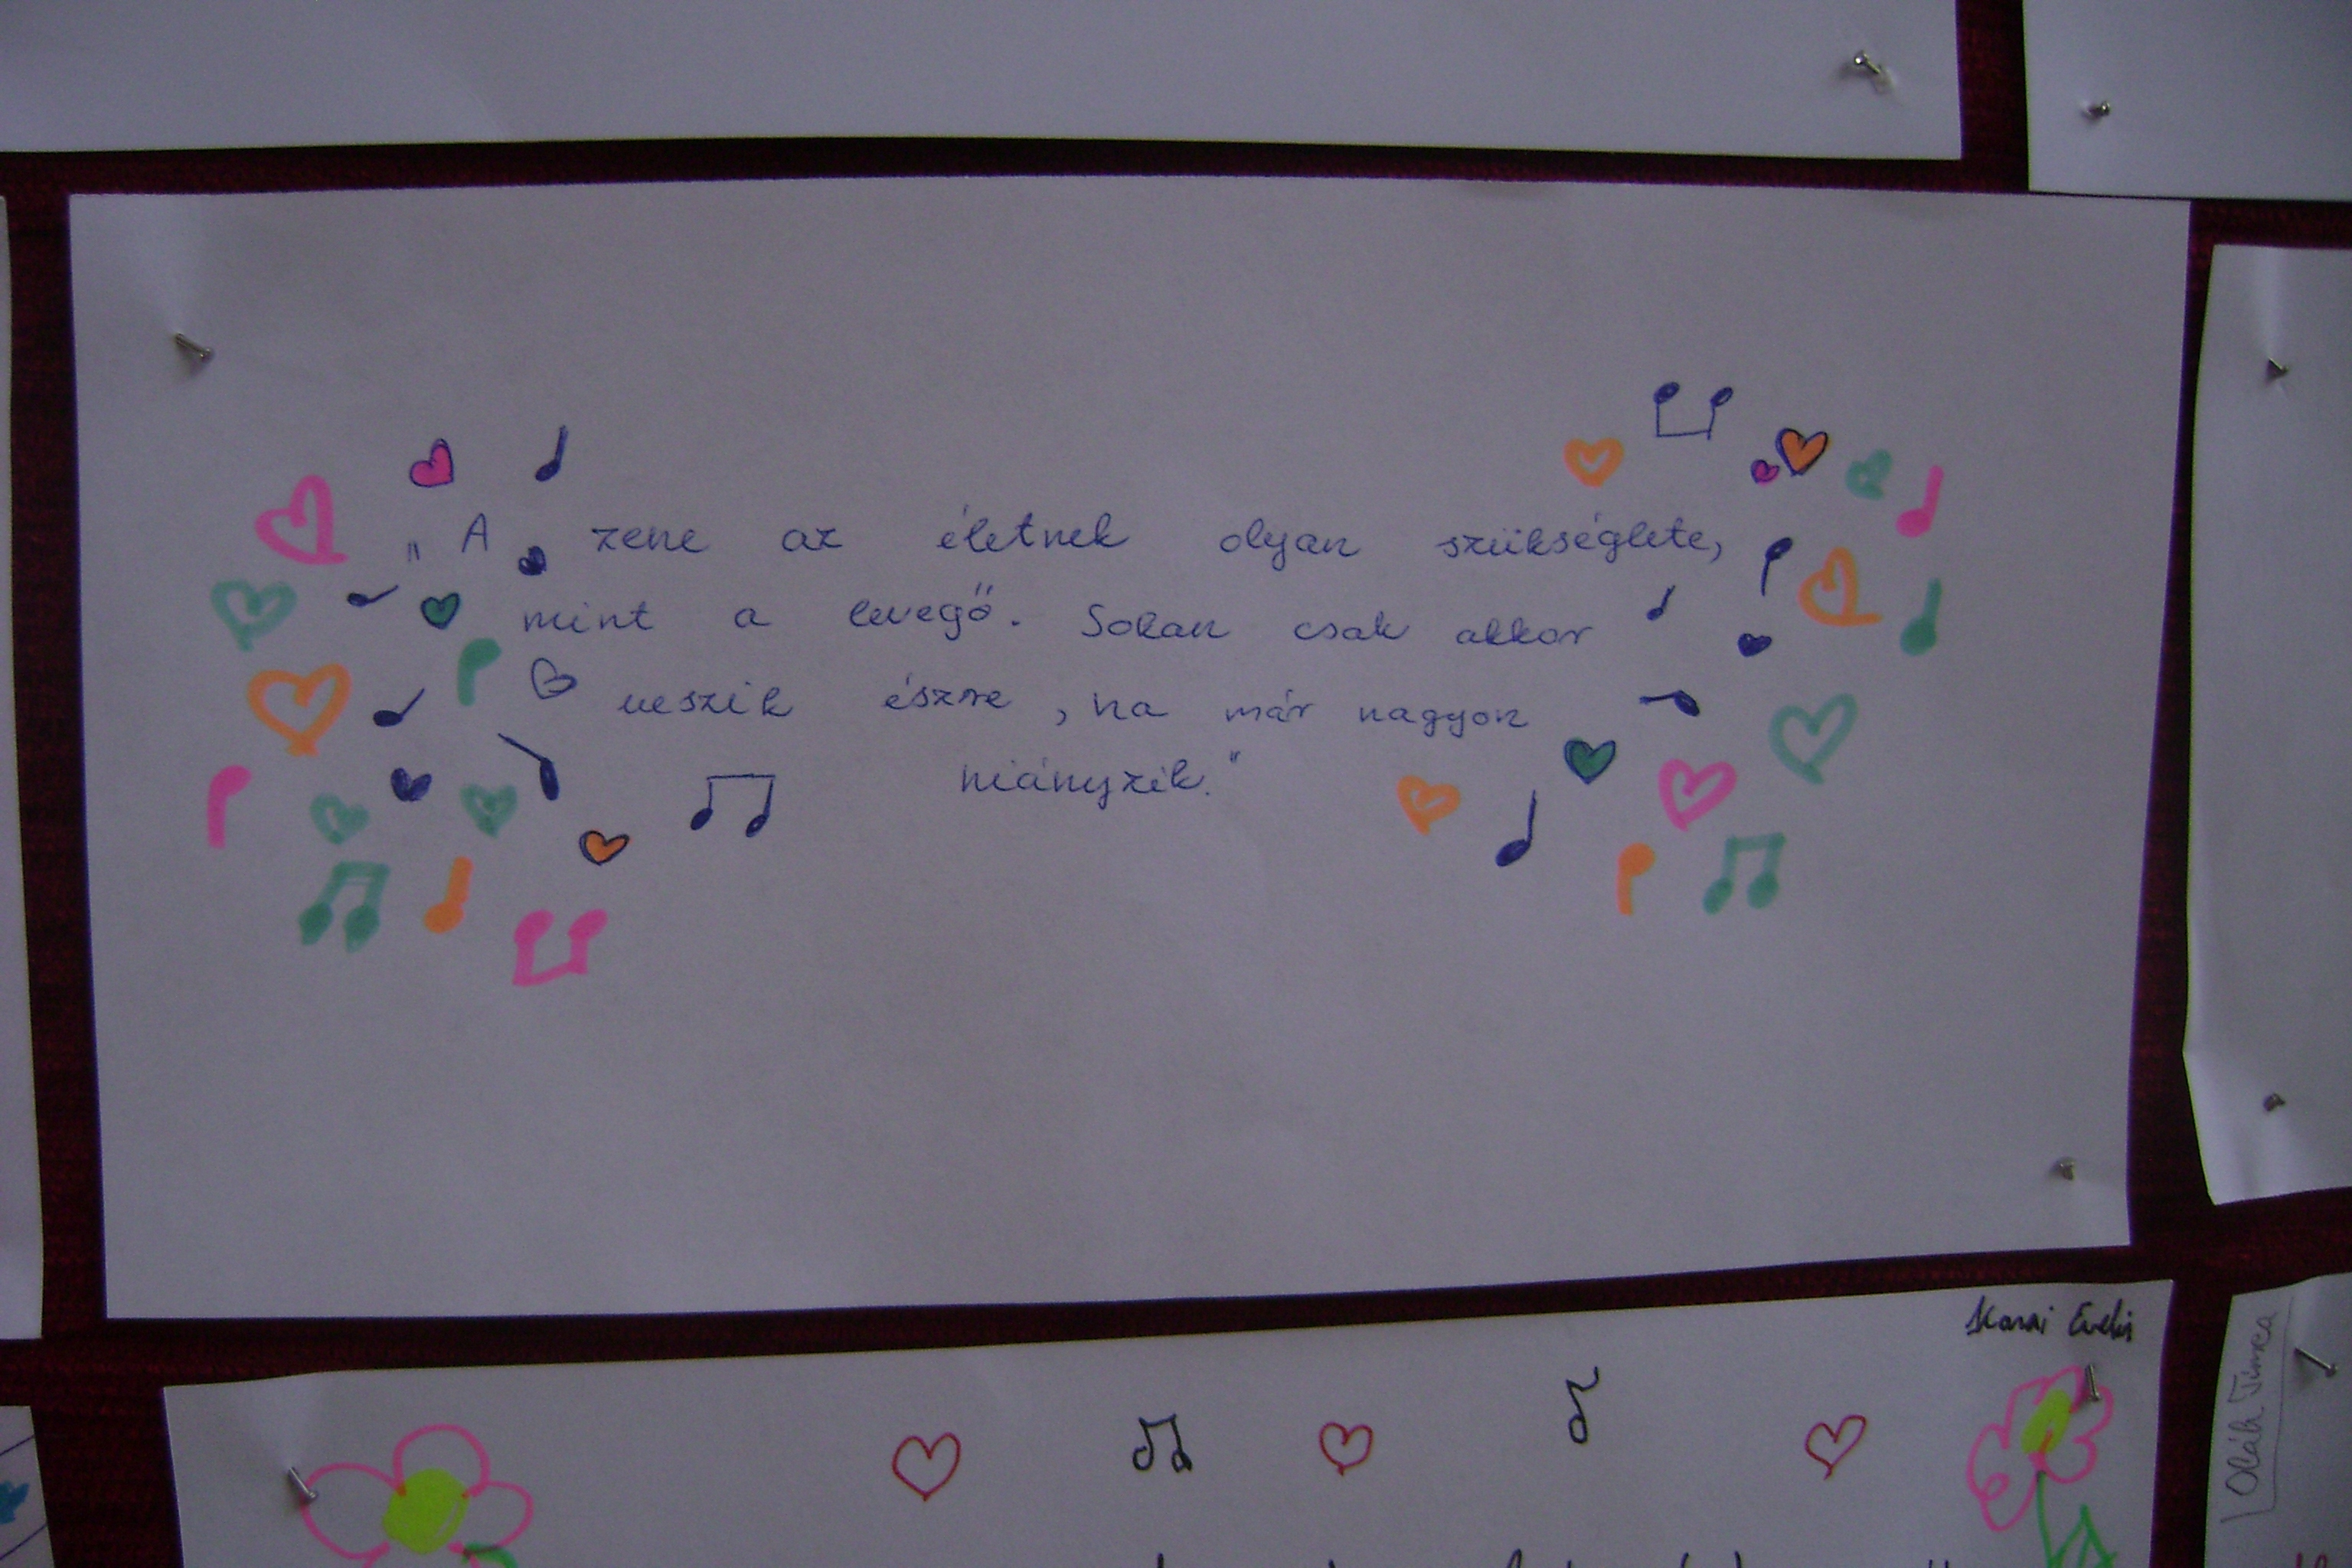 „A zene az életnek olyan szükséglete,
mint a levegő. Sokan csak akkor
veszik észre, ha már nagyon
hiányzik."
Oláh Tímea